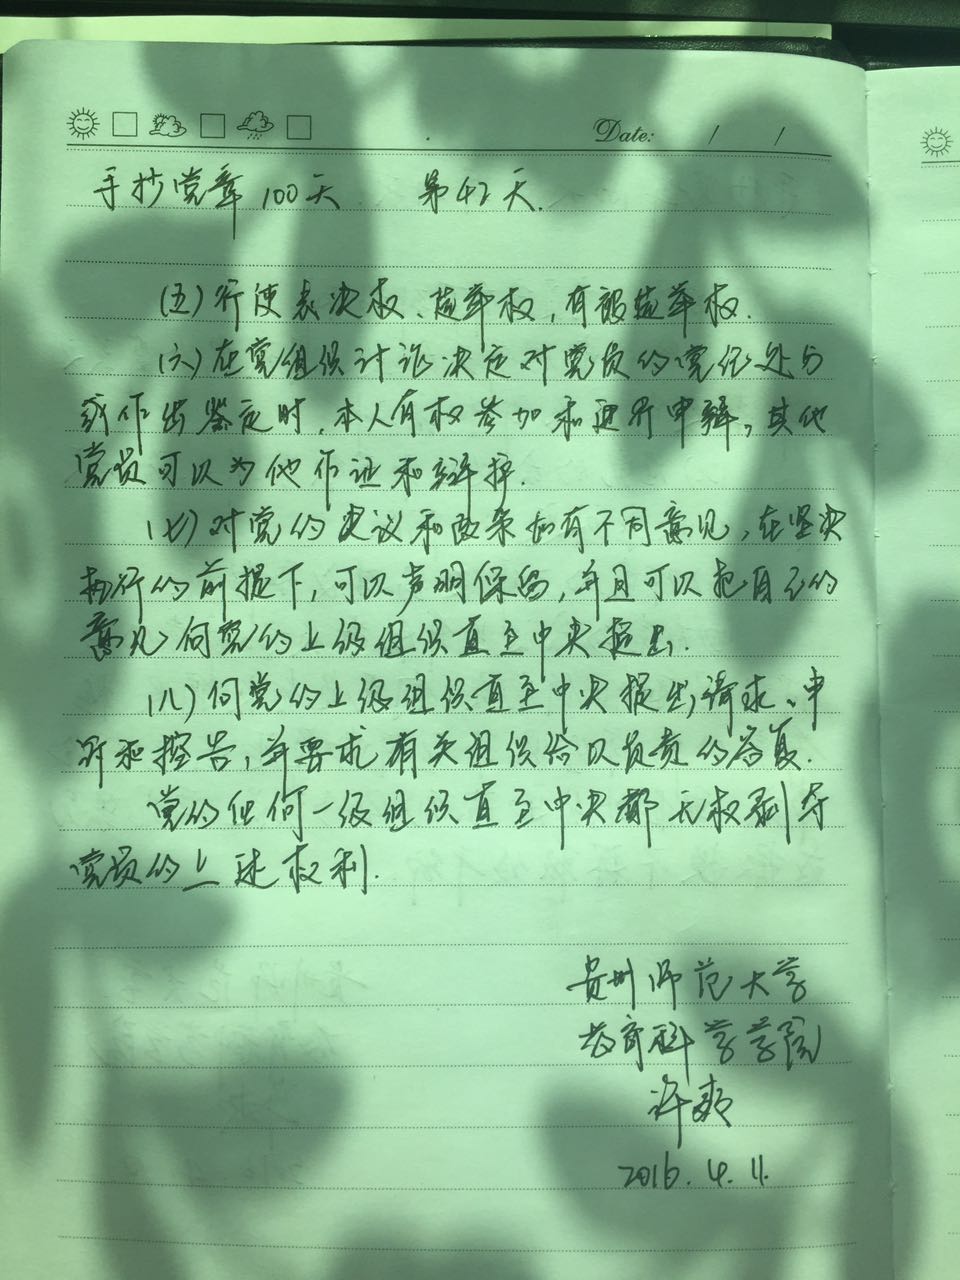 Date: / /
手抄党章100天 第42天.
(五)行使表决权、选举权,有被选举权.
(六)在党组织讨论决定对党员的党纪处分
或作出鉴定时,本人有权参加和进行申辩,其他
党员可以为他作证和辩护.
(七)对党的决议和政策如有不同意见,在坚决
执行的前提下,可以声明保留,并且可以把自己的
意见向党的上级组织直至中央提出.
(八)向党的上级组织直至中央提出请求、申
诉和控告,并要求有关组织给以负责的答复.
党的任何一级组织直至中央都无权剥夺
党员的上述权利.
贵州师范大学
教育科学学院
许爽
2016.4.11.